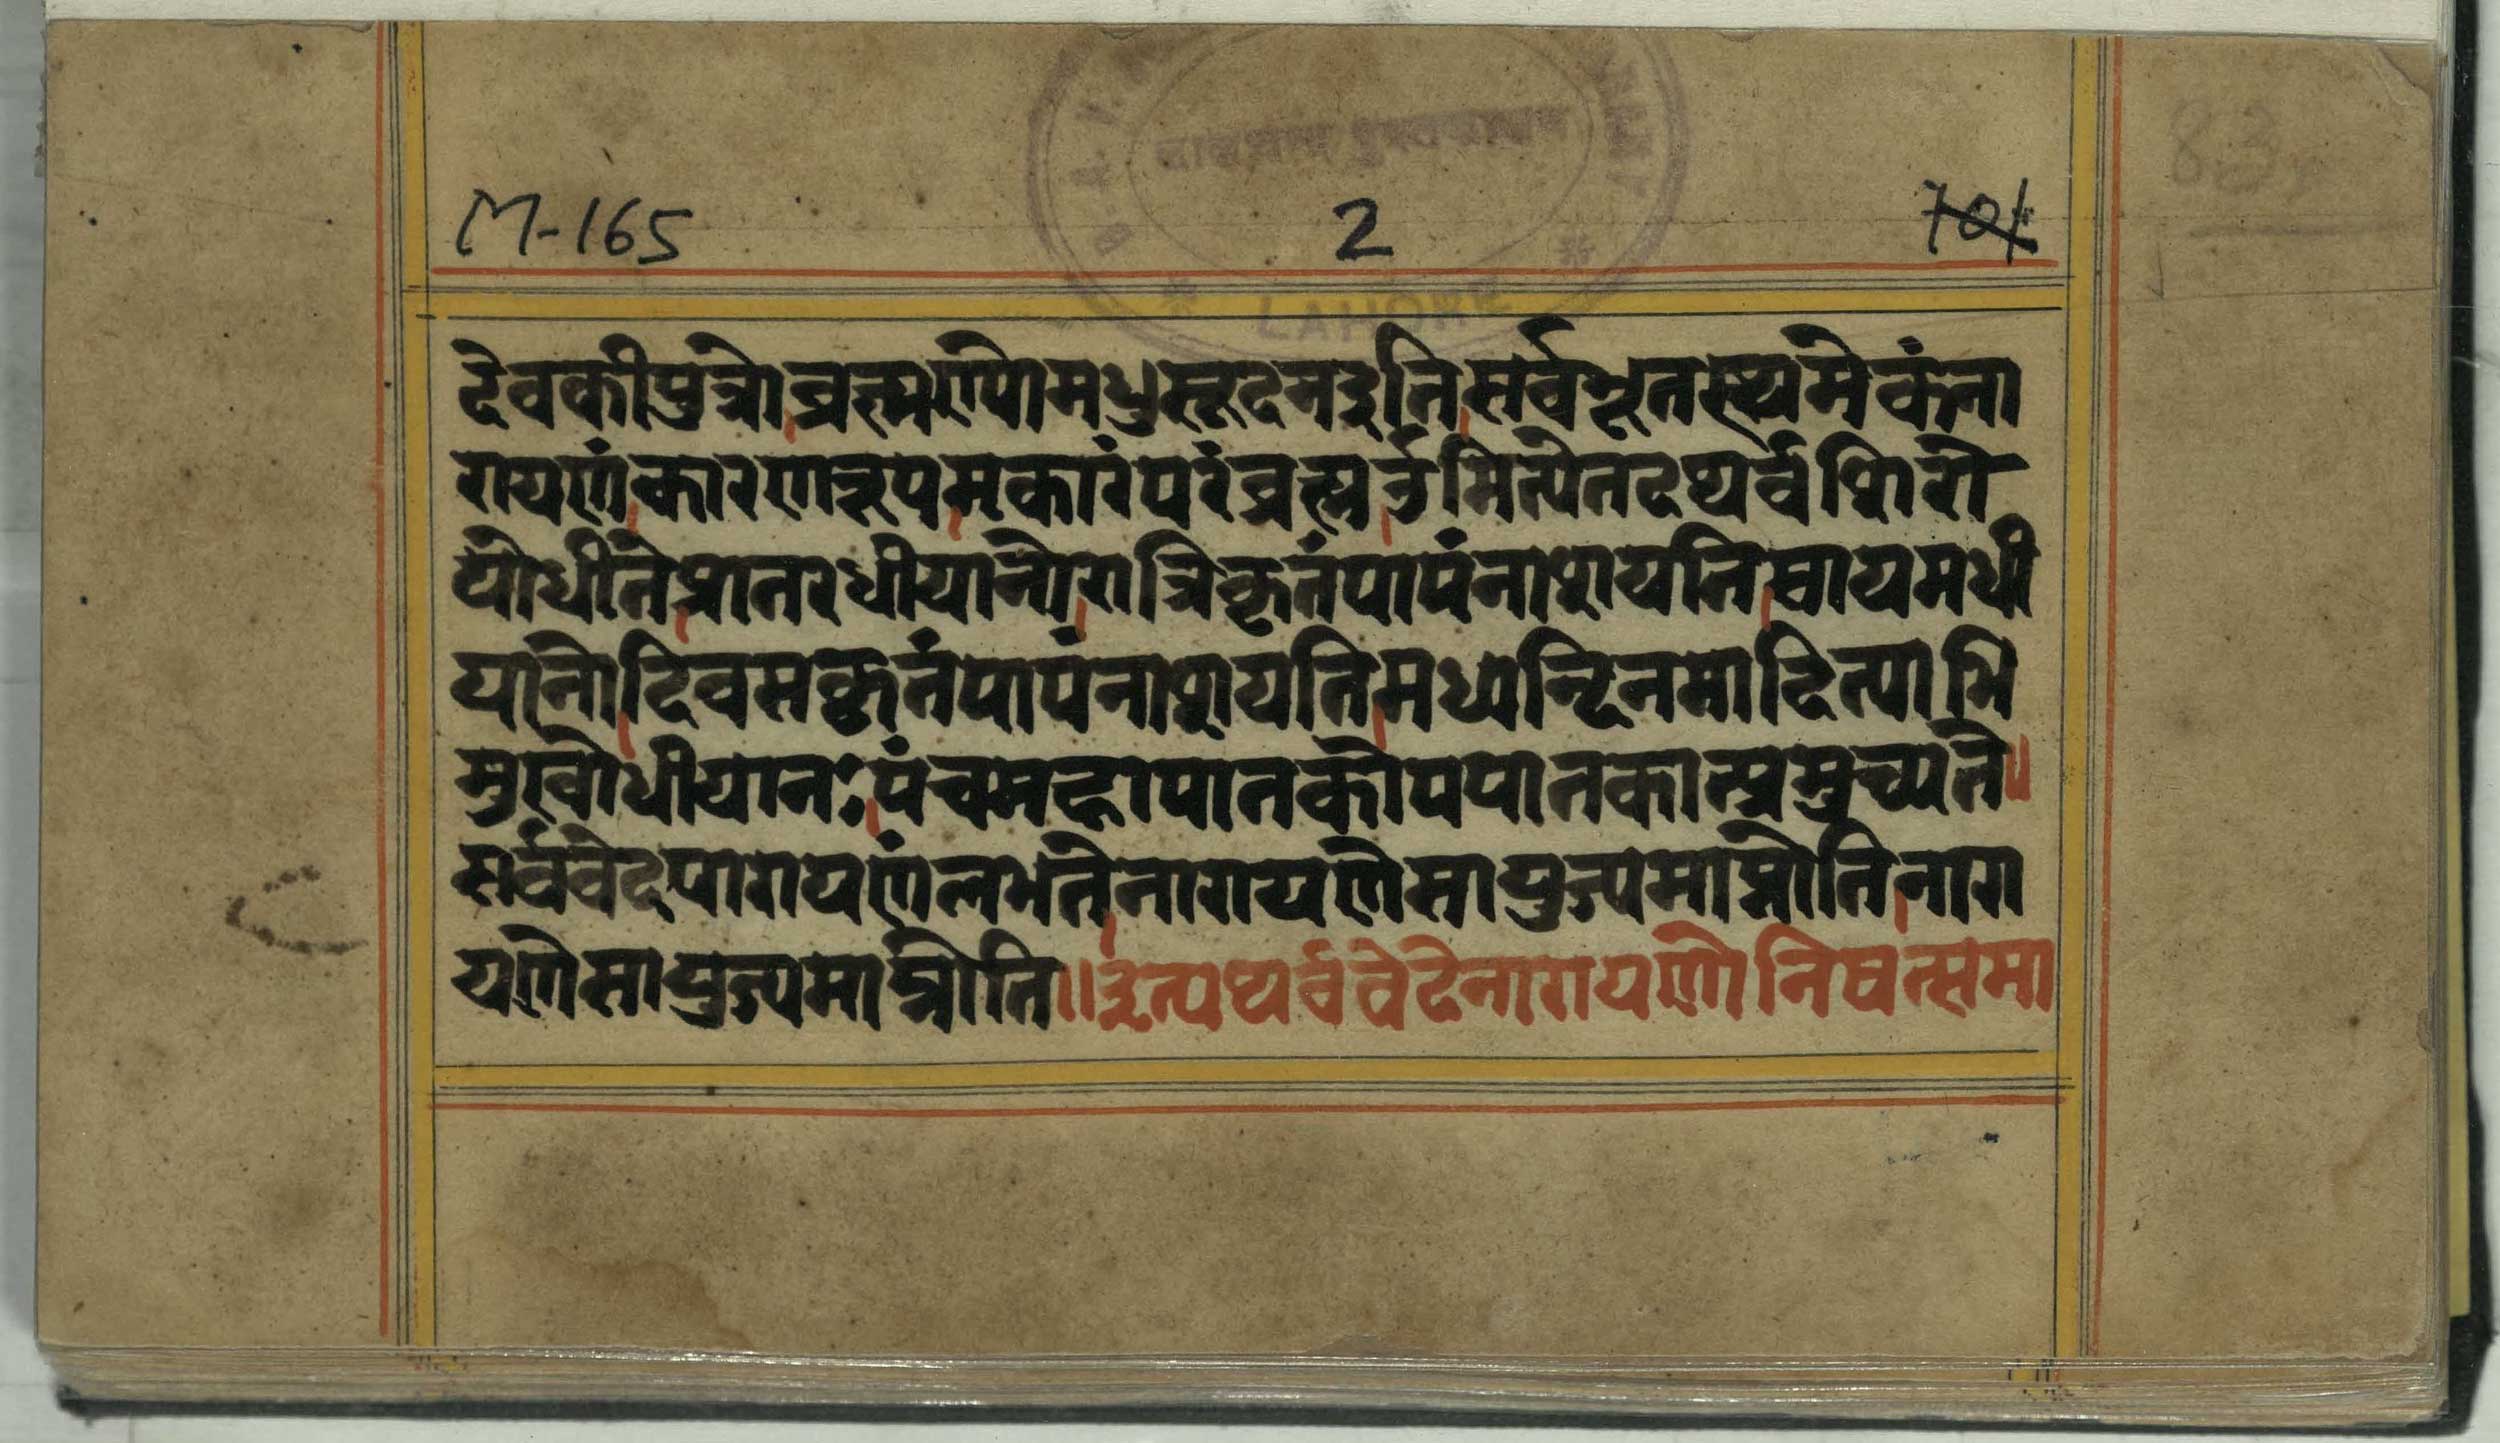 M-165 2 704
LAHORE
देवकीपुत्रोब्रह्मण्योमधुसूदनइतिसर्वभूतस्थमेकंना
रायणंकारणरूपमकारंपरंब्रह्मर्उमित्येतदथर्वशिरो
योधीतेप्रातरधीयानोरात्रिकृतंपापंनाशयतिसायमधी
यानोदिवसकृतंपापंनाशयतिमध्यन्दिनमादित्याभि
मुखोधीयानःपंचमहापातकोपपातकात्प्रमुच्यते॥
सर्ववेदपारायणंलभतेनारायणेसायुज्यमाप्नोतिनारा
यणेसायुज्यमाप्नोति॥इत्यथर्ववेदेनारायणोनिषत्समा